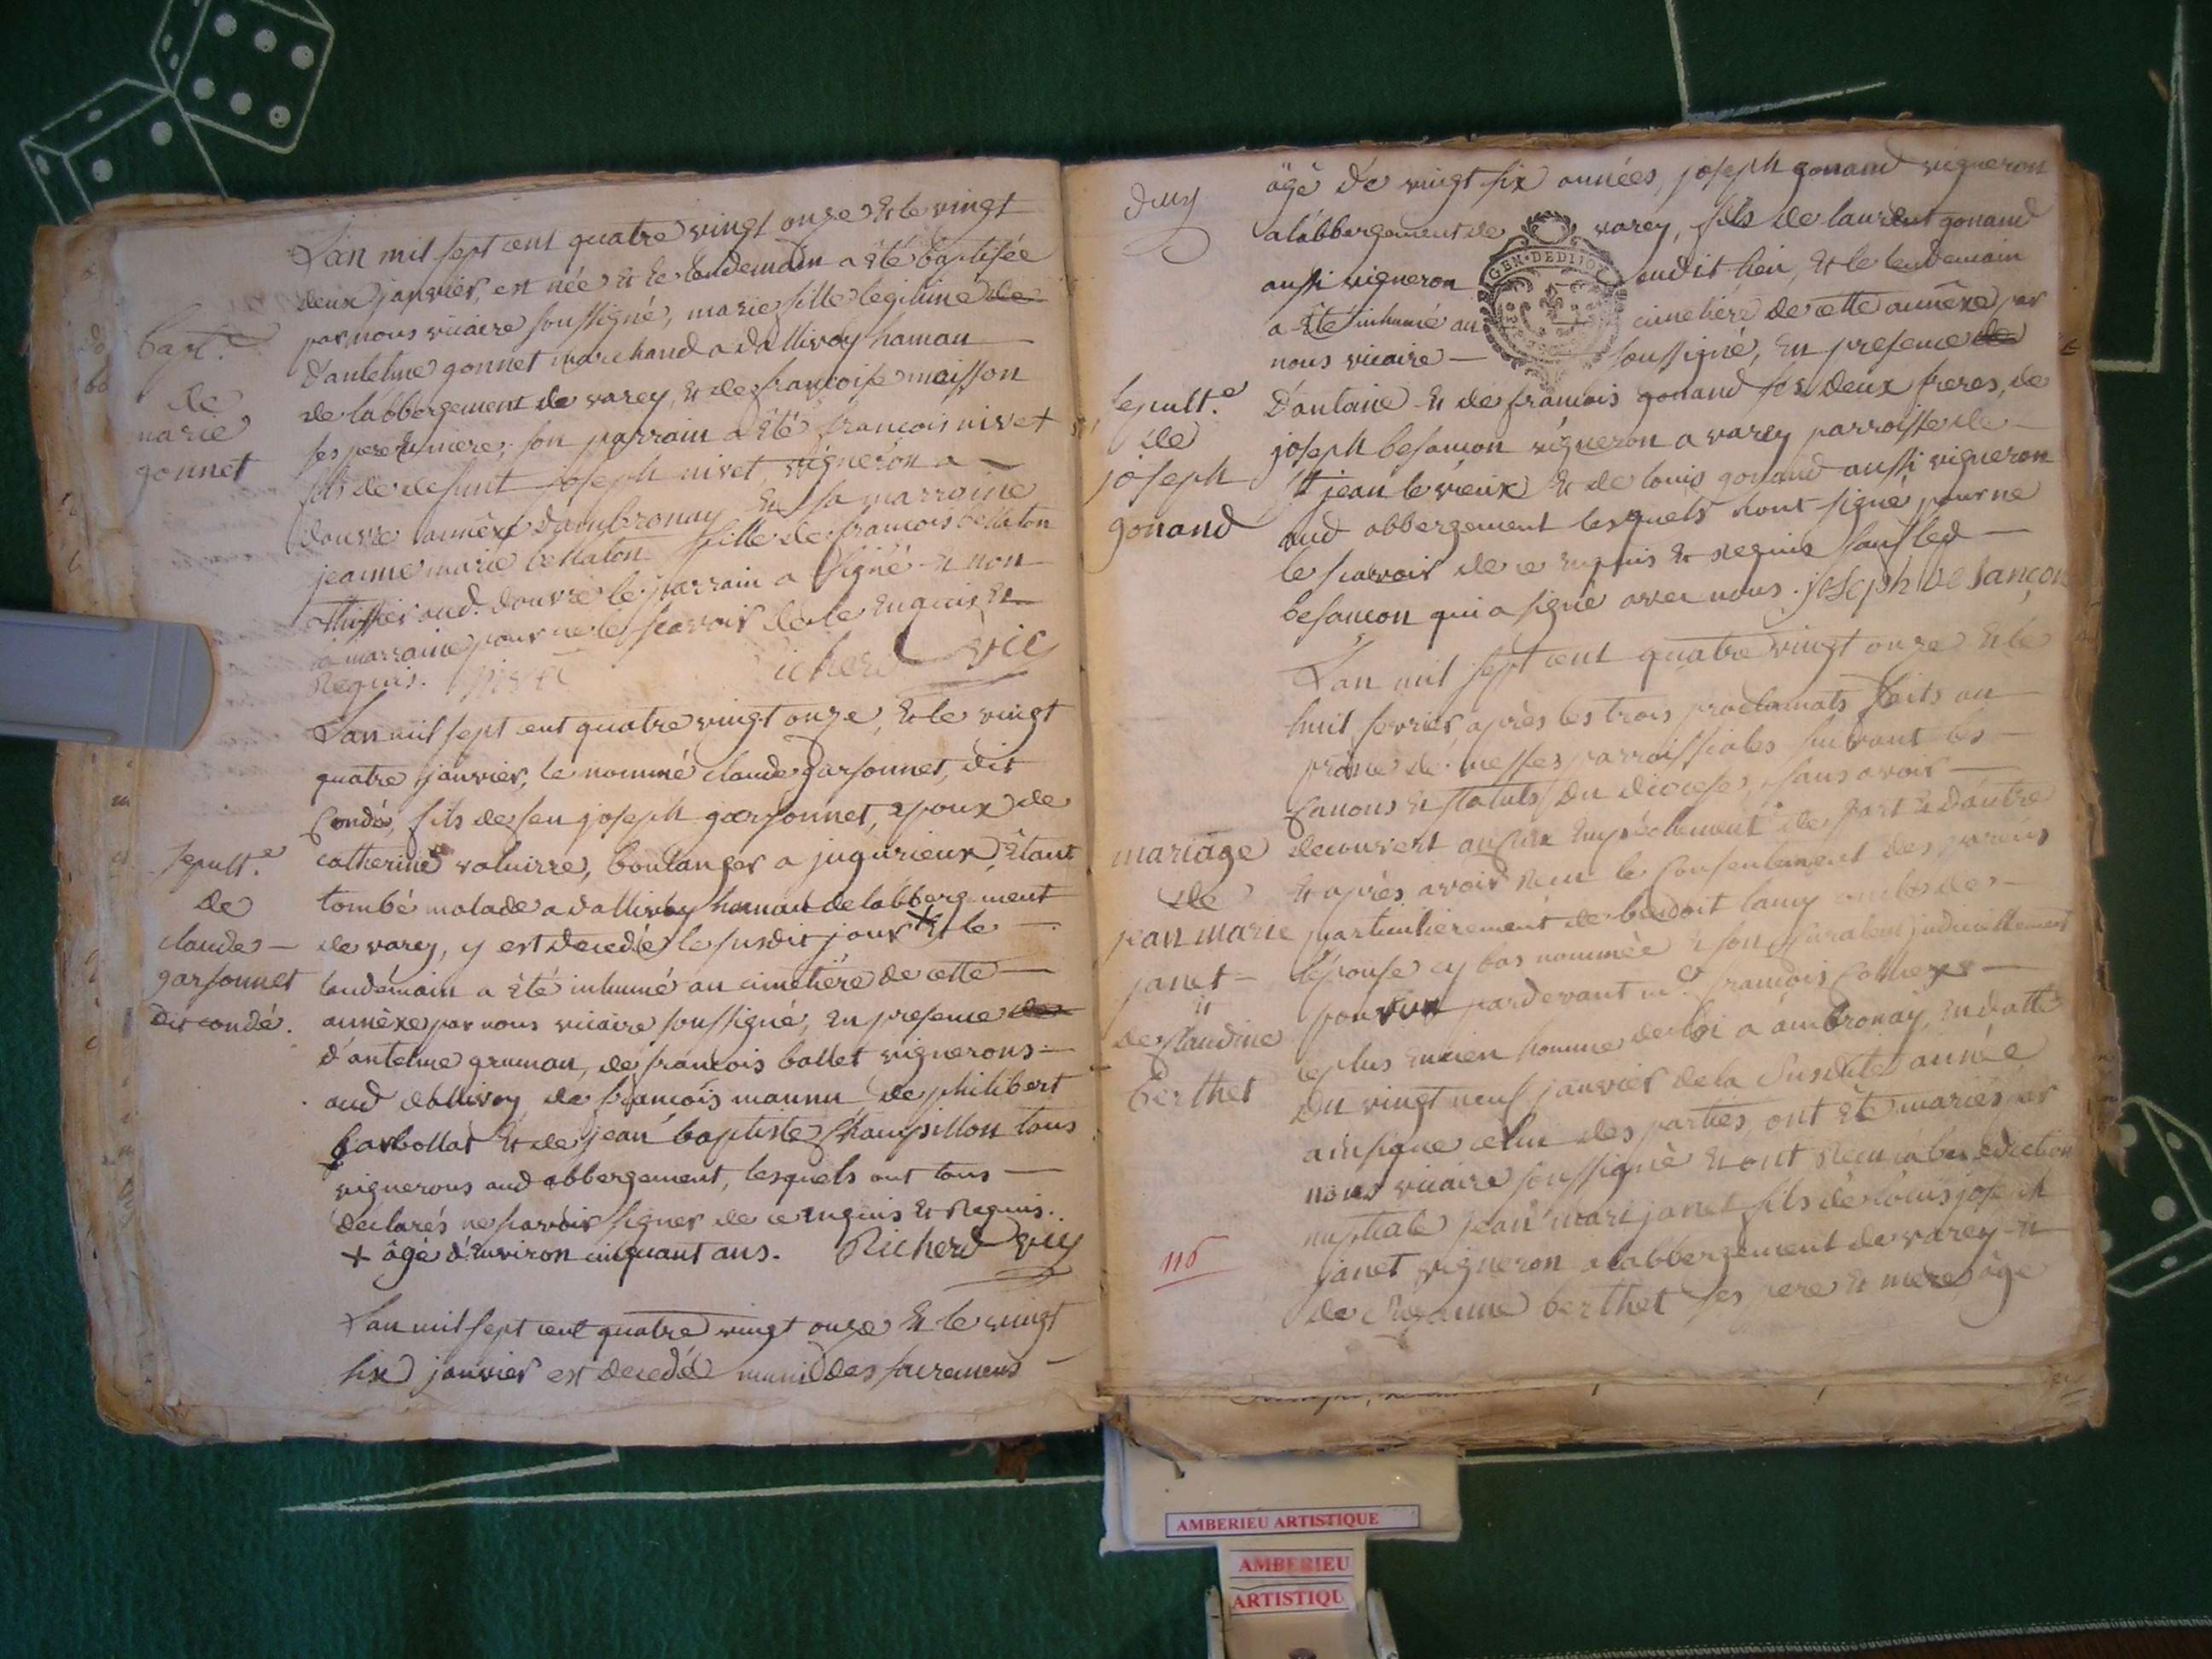 L'an mil sept cent quatre vingt onze & le vingt
deux janvier, est née & le landemain a été baptisée
par nous vicaire soussigné, marie fille legitime de
d'antelme gonnet marchand a dallivoy hamau
de labbergement de varey, & de francoise moisson
ses pere & mere; son parrain a été francois nivet
fils de defunt joseph nivet, vigneron a
douvre annêxe d'ambronay & sa marraine
jeanne marie bellaton fille de francois bellaton
aud. douvre le parrain a signé & non
la marraine pour ne le scavoir de ce enquis &
Requis. Richerd vic
bapt.e
de
marie
gonnet
L'an mil sept cent quatre vingt onze, & le vingt
quatre janvier, le nommé claude garsonnet, dit
Condé, fils de feu joseph garsonnet, epoux de
catherine valuirre, boulanger a jugurieux, étant
tombé malade a dallivoy hamau de labbergement
de varey, y est decedé le susdit jour + & le
landemain a été inhumé au cimetière de cette
annêxe par nous vicaire soussigné, en presence de
d'antelme gruman, de francois ballet vignerons
aud dallivoy de francois mannu de philibert
barbollat & de jean baptiste Champillon tous
vignerons aud abbergement, lesquels ont tous
declarés ne scavoir signer de ce enquis & Requis.
+ âgé d'environ cinquant ans. Richerd vic
sepult.e
de
claude
garsonnet
dit condé.
L'an mil sept cent quatre vingt onze & le vingt
six janvier est decedé muni des sacremens
deux
âgé de vingt six années, joseph gonand vigneron
a labbergement de varey, fils de laurent gonand
aussi vigneron audit lieu, & le lendemain
a été inhumé au cimetière de cette annêxe par
nous vicaire soussigné, en presence de
GEN. DE DIJON
D'antoine & de francois gonand ses deux freres, de
joseph besancon vigneron a varey parroisse de
st jean le vieux & de louis gonand aussi vigneron
aud abbergement lesquels n'ont signé pour ne
le scavoir de ce enquis & requis sauf led
besancon qui a signé avec nous. joseph besançon
sepult.e
de
joseph
gonand
L'an mil sept cent quatre vingt onze & le
huit fevrier, après les trois proclamats faits au
prone de messes parroissiales suivant les
Canons & statuts du diocese, sans avoir
decouvert aucun empêchement de part & d'autre
& après avoir recu le Consentement des parens
particulierement de benoit lamy oncle de
l'épouse cy bas nommée & son curateur judiciellement
pourvu pardevant me francois
le plus ancien homme de loi a ambronay, en datte
du vingt neuf janvier de la susdite année
ainsi que celui des parties, ont été mariés par
nous vicaire soussigné & ont recu la benediction
nuptiale jean mari janet fils de louis joseph
janet vigneron a labbergement de varey &
de Suzanne berthet ses pere & mere âgé
mariage
de
jean marie
janet
&
de Claudine
berthet
116
AMBERIEU ARTISTIQUE
AMBERIEU
ARTISTIQU